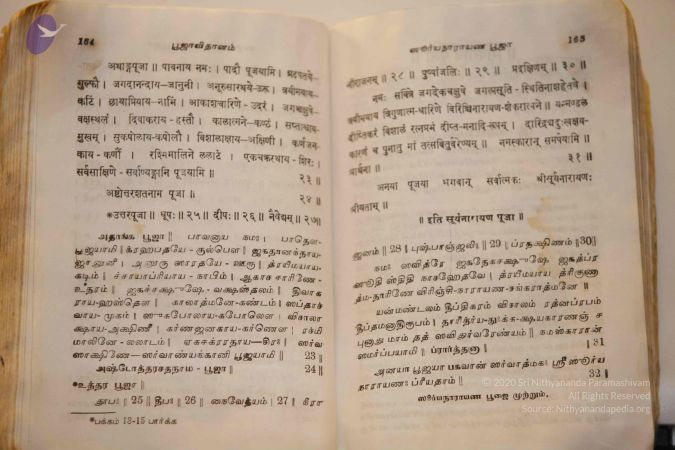 164 பூஜாவிதானம்
अथाङ्गपूजा ॥ पावनाय नमः । पादौ पूजयामि । ग्रहपतये-
गुल्फौ । जगदानन्दाय-जानुनी । अनूरुसारथये-ऊरू । त्रयीमयाय-
कटिं । छायाप्रियाय-नाभिं । आकाशचारिणे-उदरं । जगच्चक्षुषे-
वक्षस्थलं । दिवाकराय-हस्तौ । कालात्मने-कण्ठं । सप्ताश्वाय-
मुखम् । सुकपोलाय-कपोलौ । विशालाक्षाय-अक्षिणी । कर्णजन-
काय-कर्णौ । रश्मिमालिने ललाटं । एकचक्ररथाय-शिरः ।
सर्वसाक्षिणे-सर्वाण्यङ्गानि पूजयामि ॥ २३ ॥
अष्टोत्तरशतनाम पूजा ॥ २४ ॥
*उत्तरपूजा ॥ धूपः ॥ २५ ॥ दीपः ॥ २६ ॥ नैवेद्यम् ॥ २७ ॥
அதாங்க பூஜா ॥ பாவனாய நம: । பாதௌ-
பூஜயாமி । க்ரஹபதயே-குல்பௌ । ஜகதானந்தாய-
ஜானுனீ । அனூரு ஸாரதயே-ஊரூ । த்ரயீமயாய-
கடிம் । ச்சாயாப்ரியாய-நாபிம் । ஆகாச சாரிணே-
உதரம் । ஜகச்சக்ஷுஷே-வக்ஷஸ்தலம் । திவாக
ராய-ஹஸ்தௌ । காலாத்மனே-கண்டம் । ஸப்தாச்
வாய-முகம் । ஸுகபோலாய-கபோலௌ । விசாலா
க்ஷாய-அக்ஷிணீ । கர்ணஜனகாய-கர்ணௌ । ரச்மி
மாலினே-லலாடம் । ஏகசக்ரரதாய-சிர: । ஸர்வ
ஸாக்ஷிணே-ஸர்வாண்யங்கானி பூஜயாமி ॥ 23 ॥
அஷ்டோத்தரசதநாம-பூஜா ॥ 24 ॥
*உத்தர பூஜா ॥
தூப: ॥ 25 ॥ தீப: ॥ 26 ॥ நைவேத்யம் । 27 । நீரா
*பக்கம் 13-15 பார்க்க
ஸூர்யநாராயண பூஜா 165
नीराजनम् ॥ २८ ॥ पुष्पाञ्जलिः ॥ २९ ॥ प्रदक्षिणम् ॥ ३० ॥
नमः सवित्रे जगदेकचक्षुषे जगत्प्रसूति-स्थितिनाशहेतवे ।
त्रयीमयाय त्रिगुणात्म-धारिणे विरिञ्चिनारायण-शंकरात्मने ॥ यन्मण्डलं
दीप्तिकरं विशालं रत्नप्रभं दीप्त-मनादि-रूपम् । दारिद्र्यदुःखक्षय-
कारणं च पुनातु मां तत्सवितुर्वरेण्यम् ॥ नमस्कारान् समर्पयामि ॥
प्रार्थना ॥ ३१ ॥
अनया पूजया भगवान् सर्वात्मकः श्रीसूर्यनारायणः
प्रीयताम् ॥
॥ इति सूर्यनारायण पूजा ॥
ஜனம் ॥ 28 । புஷ்பாஞ்ஜலி: ॥ 29 ॥ ப்ரதக்ஷிணம் ॥30॥
நம: ஸவித்ரே ஜகதேகசக்ஷுஷே ஜகத்ப்ர
ஸூதி ஸ்திதி நாசஹேதவே । த்ரயீமயாய த்ரிகுணா
த்ம-தாரிணே விரிஞ்சி-நாராயண-சங்கராத்மனே ॥
யன்மண்டலம் தீப்திகரம் விசாலம் ரத்னப்ரபம்
தீப்தமனாதிரூபம் । தாரித்ர்ய-து:க்க-க்ஷயகாரணஞ் ச
புனாது மாம் தத் ஸவிதுர்வரேண்யம் ॥ நமஸ்காரான்
ஸமர்ப்பயாமி ॥ ப்ரார்த்தனா ॥ 31
அனயா பூஜயா பகவான் ஸர்வாத்மக: ஸ்ரீ ஸூர்ய
நாராயண: ப்ரீயதாம் ॥ 32 ॥
ஸூர்யநாராயண பூஜை முற்றும்.
© 2020 Sri Nithyananda Paramashivam
All Rights Reserved
Source: Nithyanandapedia.org